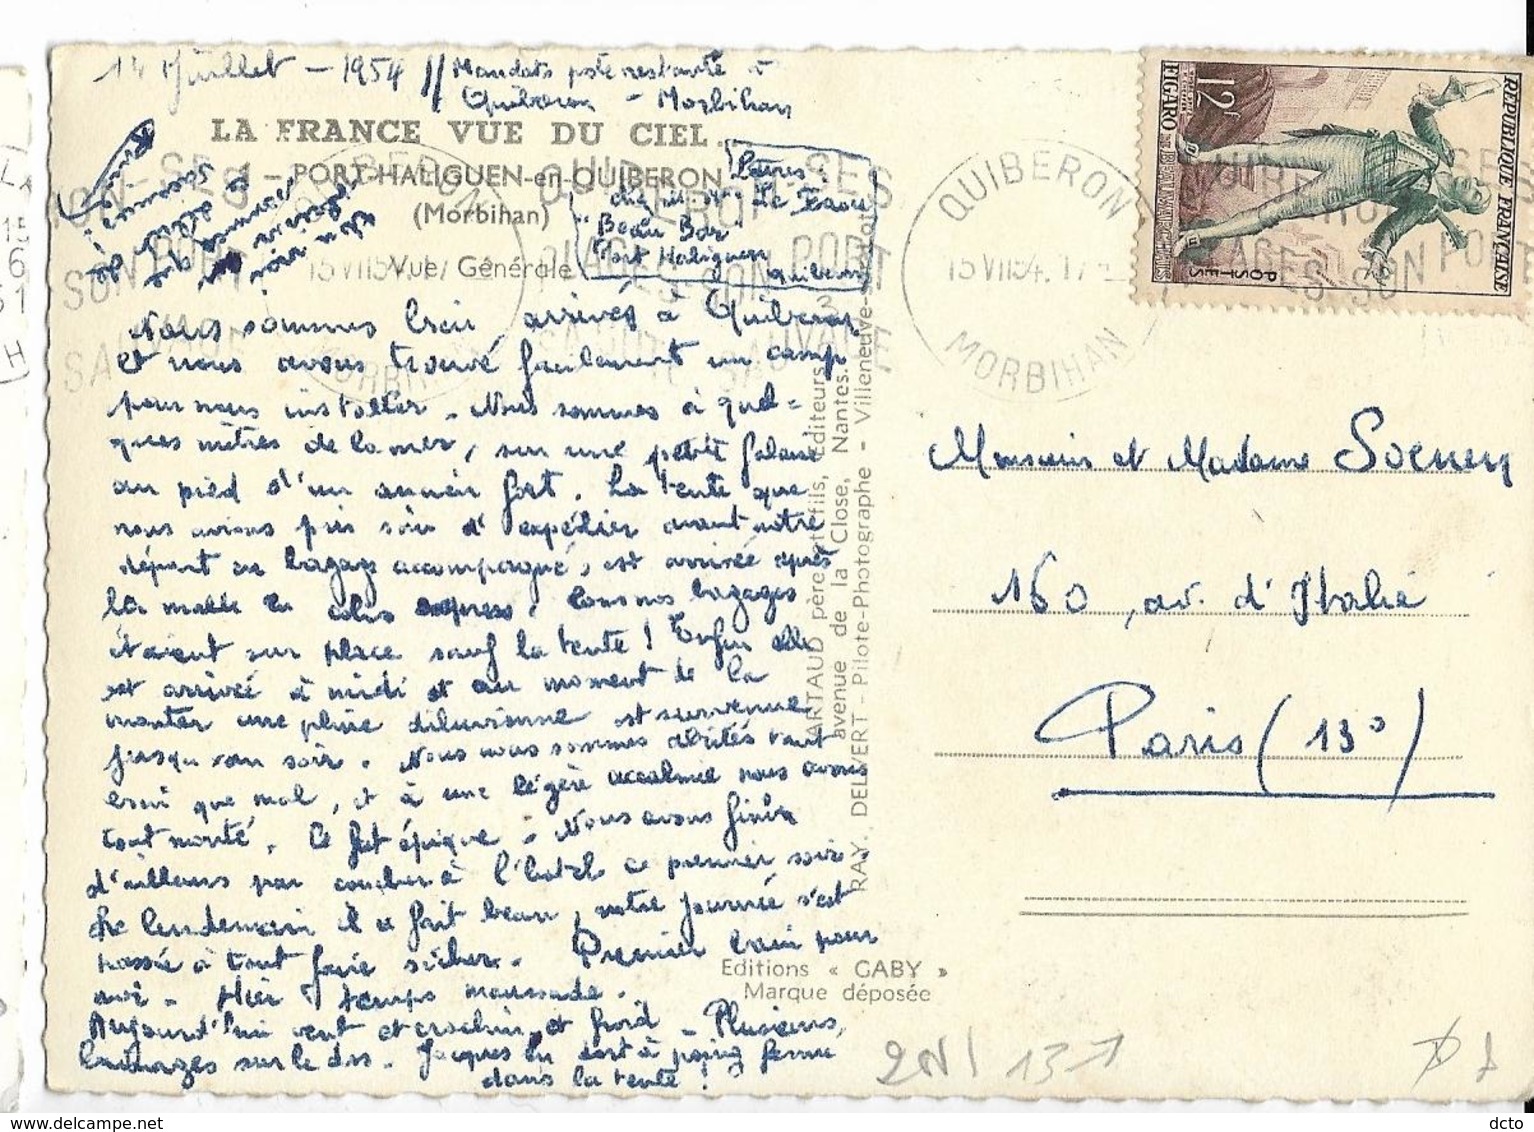 14 Juillet - 1954 // Mandats poste restante à
Quiberon - Morbihan
LA FRANCE VUE DU CIEL...
PORT-HALIGUEN-en-QUIBERON
(Morbihan)
Vue Générale
Lettres :
"Beau Bar"
Port Haliguen
Quiberon
Nous sommes bien arrivés à Quiberon
et nous avons trouvé facilement un camp
pour nous installer. Nous sommes à quel=
ques mètres de la mer, sur une petite falaise
au pied d'un ancien fort. La tente que
nous avions pris soin d'expédier avant notre
départ en bagage accompagné, est arrivée après
la malle en colis express. Tous nos bagages
étaient sur place sauf la tente ! Enfin elle
est arrivée à midi et au moment de la
monter une pluie diluvienne est survenue
jusqu'au soir. Nous nous sommes abrités tant
bien que mal, et à une légère accalmie nous avons
tout monté. Ce fut épique. Nous avons fini
d'ailleurs par coucher à l'hotel ce premier soir.
Le lendemain il a fait beau, notre journée s'est
passée à tout faire sécher. Premier bain pour
moi - Hier temps maussade.
Aujourd'hui vent et crachin et froid - Plusieurs
lainages sur le dos. Jacques en dort à poing fermé
dans la tente !
ARTAUD père et fils, Éditeurs
avenue de la Close, Nantes.
RAY. DELVERT - Pilote-Photographe - Villeneuve-s-Lot
Editions « GABY »
Marque déposée
QUIBERON
15 VII 54. 17
MORBIHAN
QUIBERON
SES PLAGES SON PORT
SA CÔTE SAUVAGE
RÉPUBLIQUE FRANÇAISE
POSTES
12F
FIGARO DE BEAUMARCHAIS
Monsieur et Madame Soenen
160, av. d'Italie
Paris (13°)
dcto